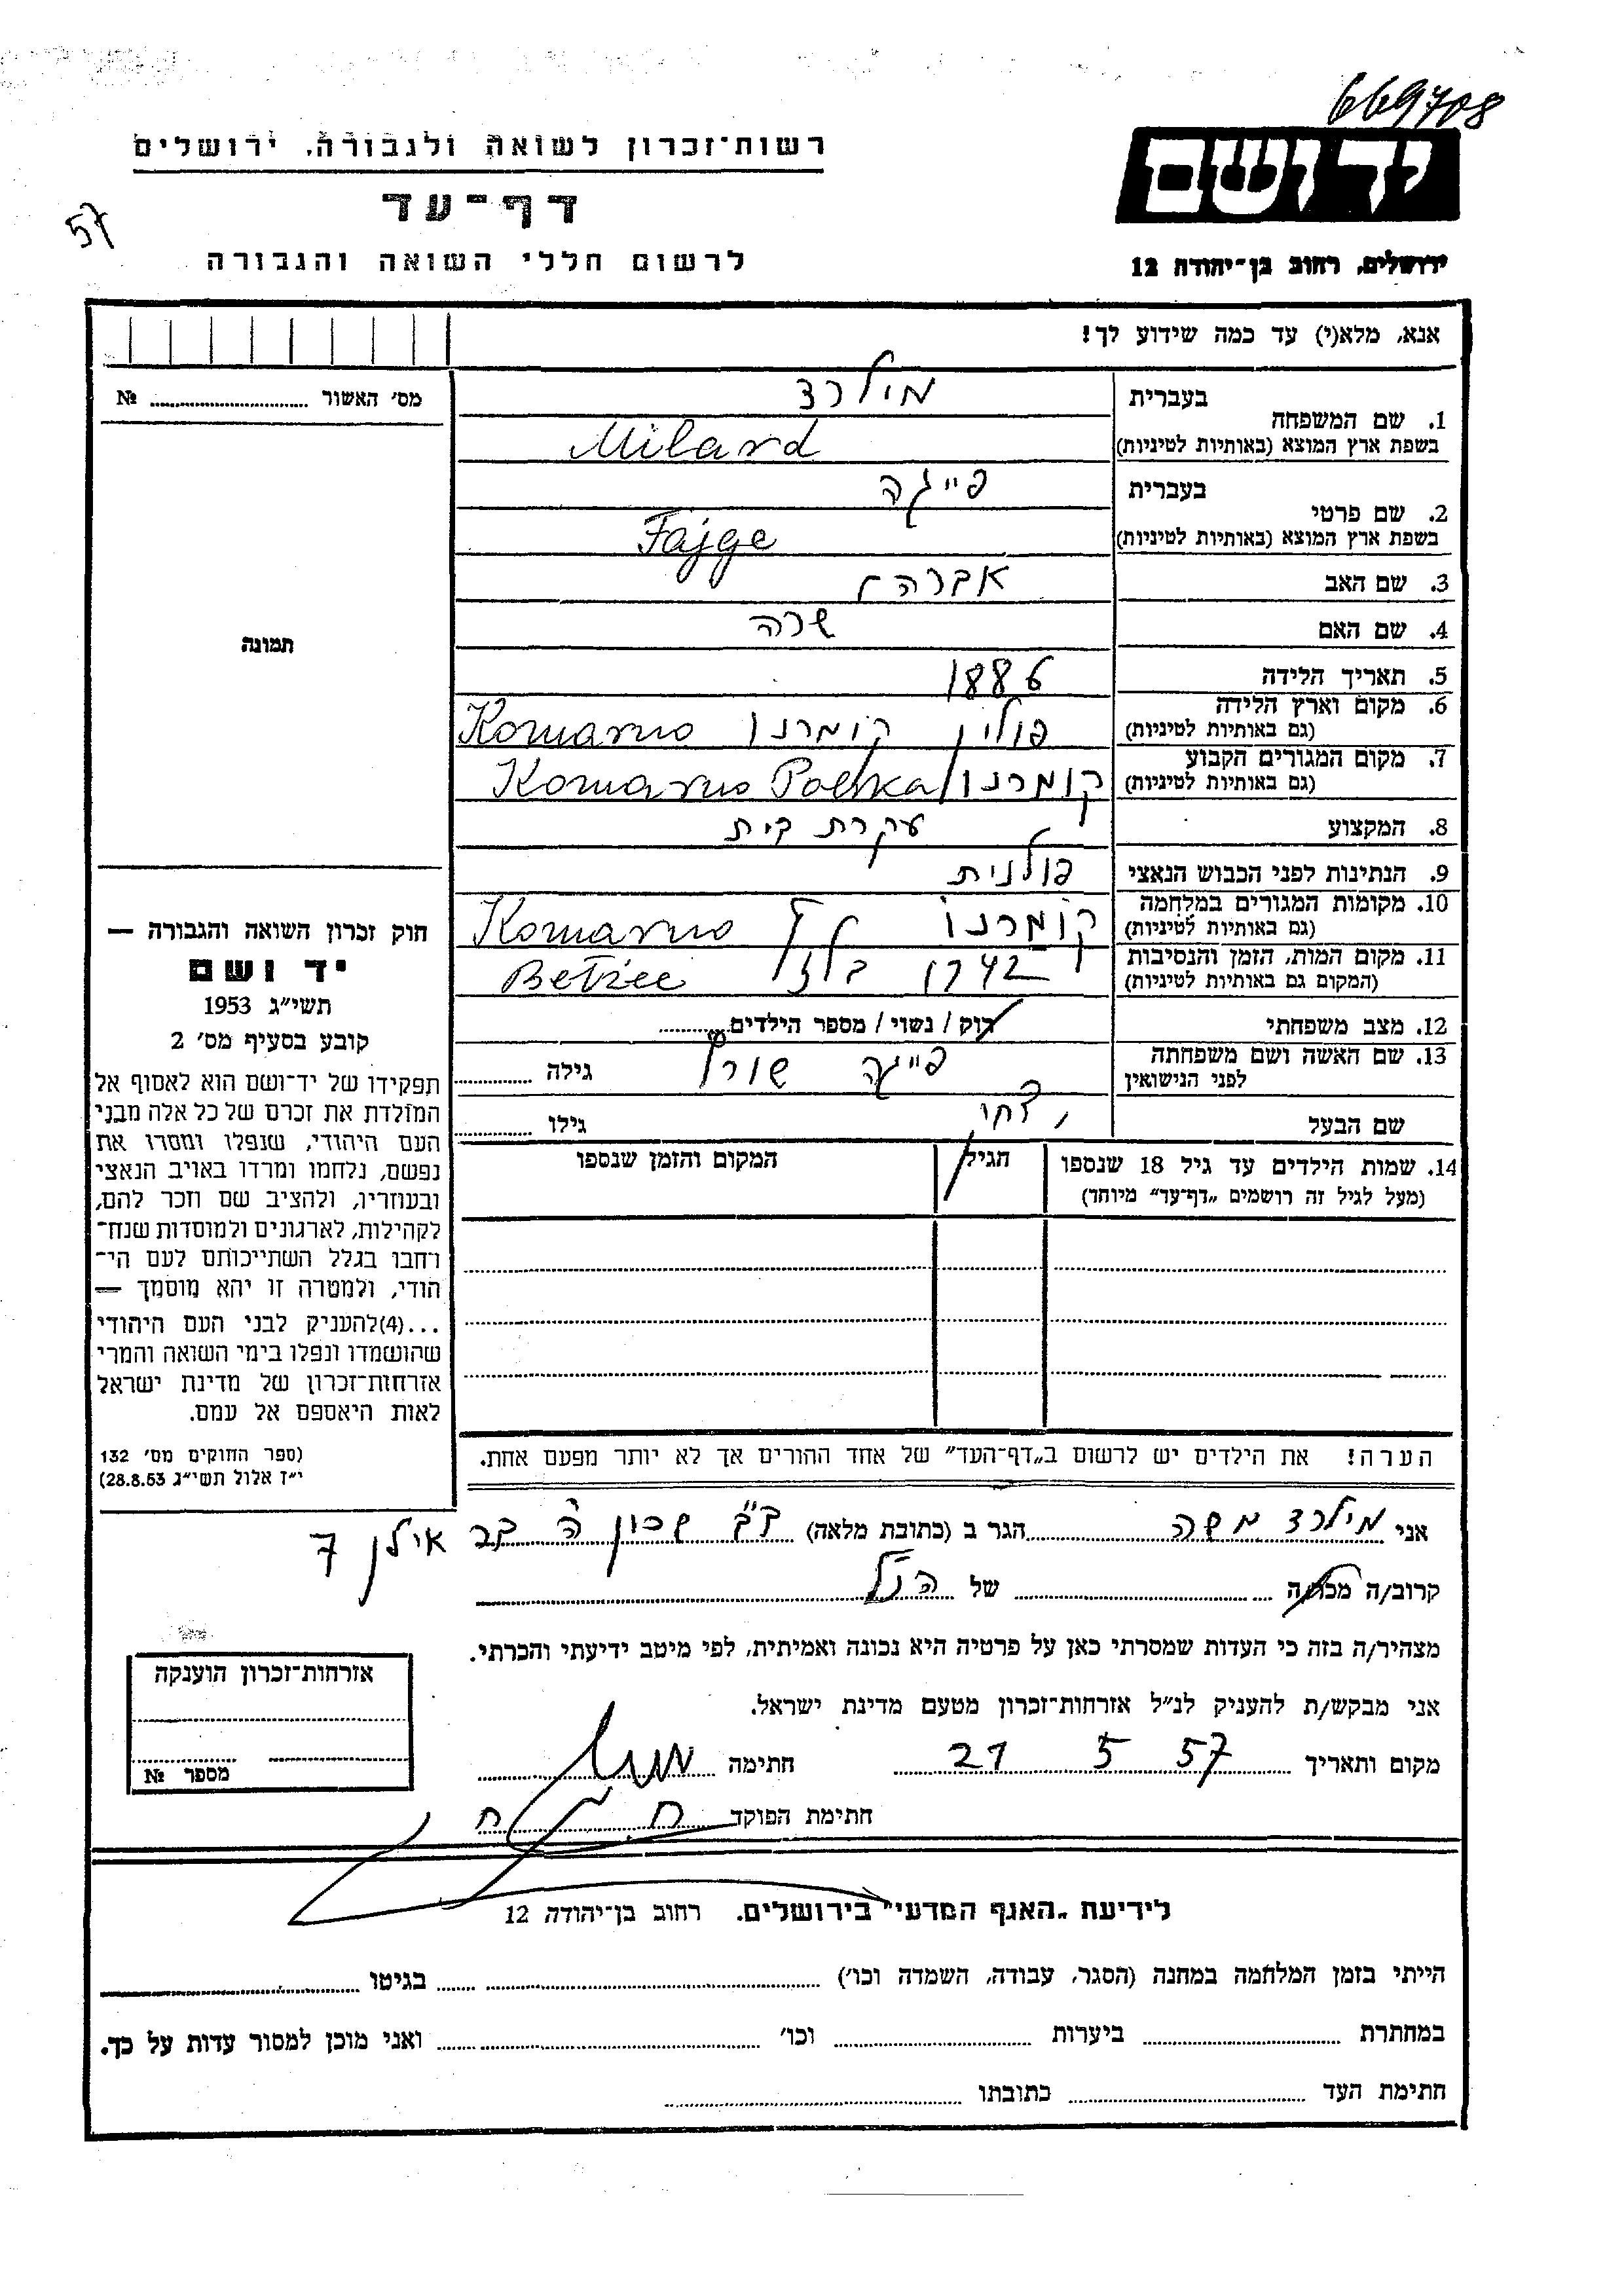 669708
יד ושם
ירושלים, רחוב בן־יהודה 12
רשות־זכרון לשואה ולגבורה, ירושלים
דף־עד
57
לרשום חללי השואה והגבורה
אנא, מלא(י) עד כמה שידוע לך!
מס׳ האשור № 
1. שם המשפחה בעברית מילרד
בשפת ארץ המוצא (באותיות לטיניות) Milard
2. שם פרטי בעברית פייגה
בשפת ארץ המוצא (באותיות לטיניות) Fajge
3. שם האב אברהם
4. שם האם שרה
5. תאריך הלידה 1886
6. מקום וארץ הלידה (גם באותיות לטיניות) פולין קומרנו Komarno
7. מקום המגורים הקבוע (גם באותיות לטיניות) קומרנו Komarno Polska
8. המקצוע עקרת בית
9. הנתינות לפני הכבוש הנאצי פולנית
10. מקומות המגורים במלחמה (גם באותיות לטיניות) קומרנו Komarno
11. מקום המות, הזמן והנסיבות (המקום גם באותיות לטיניות) 1942 Betzec
12. מצב משפחתי רוק / נשוי / מספר הילדים
13. שם האשה ושם משפחתה לפני הנישואין פייגה שורץ גילה
שם הבעל גילו
14. שמות הילדים עד גיל 18 שנספו הגיל המקום והזמן שנספו
(מעל לגיל זה רושמים „דף־עד״ מיוחד)
הערה! את הילדים יש לרשום ב„דף־העד״ של אחד ההורים אך לא יותר מפעם אחת.
תמונה
חוק זכרון השואה והגבורה —
יד ושם
תשי״ג 1953
קובע בסעיף מס׳ 2
תפקידו של יד־ושם הוא לאסוף אל
המולדת את זכרם של כל אלה מבני
העם היהודי, שנפלו ומסרו את
נפשם, נלחמו ומרדו באויב הנאצי
ובעוזריו, ולהציב שם וזכר להם,
לקהילות, לארגונים ולמוסדות שנח־
רחבו בגלל השתייכותם לעם הי־
הודי, ולמטרה זו יהא מוסמך —
...(4)להעניק לבני העם היהודי
שהושמדו ונפלו בימי השואה והמרי
אזרחות־זכרון של מדינת ישראל
לאות היאספם אל עמם.
(ספר החוקים מס׳ 132
י״ז אלול תשי״ג 28.8.53)
אני מילרד משה הגר ב (כתובת מלאה) ב״ב שכון ה׳ בר אילן 7
קרוב/ה מכר/ה של הנ״ל
מצהיר/ה בזה כי העדות שמסרתי כאן על פרטיה היא נכונה ואמיתית, לפי מיטב ידיעתי והכרתי.
אני מבקש/ת להעניק לנ״ל אזרחות־זכרון מטעם מדינת ישראל.
מקום ותאריך 21 5 57 חתימה
חתימת הפוקד
אזרחות־זכרון הוענקה
מספר №
לידיעת „האגף המדעי״ בירושלים, רחוב בן־יהודה 12
הייתי בזמן המלחמה במחנה (הסגר, עבודה, השמדה וכו׳) בגיטו
במחתרת ביערות וכו׳ ואני מוכן למסור עדות על כך.
חתימת העד כתובתו